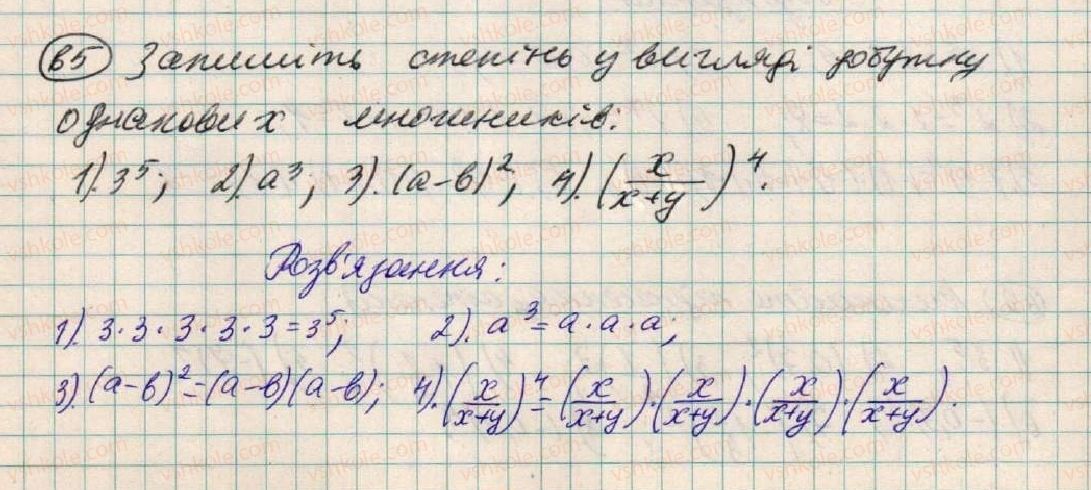 65 Запишіть степінь у вигляді добутку
однакових множників:
1). 3⁵; 2). a³; 3). (a-b)²; 4). (x/(x+y))⁴.
Розв'язання:
1). 3·3·3·3·3=3⁵; 2). a³=a·a·a;
3). (a-b)²=(a-b)(a-b); 4). (x/(x+y))⁴=(x/(x+y))·(x/(x+y))·(x/(x+y))·(x/(x+y)).